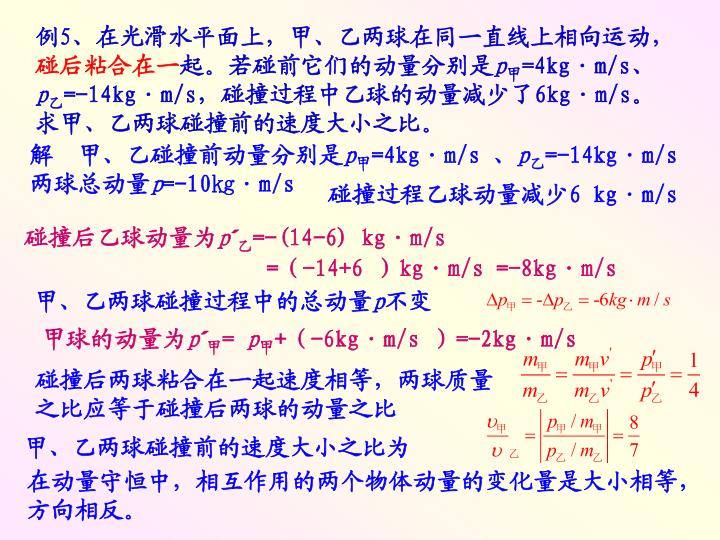 例5、在光滑水平面上，甲、乙两球在同一直线上相向运动，
碰后粘合在一起。若碰前它们的动量分别是p甲=4kg·m/s、
p乙=-14kg·m/s，碰撞过程中乙球的动量减少了6kg·m/s。
求甲、乙两球碰撞前的速度大小之比。
解 甲、乙碰撞前动量分别是p甲=4kg·m/s 、p乙=-14kg·m/s
两球总动量p=-10kg·m/s
碰撞过程乙球动量减少6 kg·m/s
碰撞后乙球动量为p´乙=-(14-6) kg·m/s
=（-14+6 ）kg·m/s =-8kg·m/s
甲、乙两球碰撞过程中的总动量p不变
Δp甲 = -Δp乙 = -6kg·m/s
甲球的动量为p´甲= p甲+（-6kg·m/s ）=-2kg·m/s
碰撞后两球粘合在一起速度相等，两球质量
之比应等于碰撞后两球的动量之比
m甲/m乙 = m甲v'/m乙v' = p'甲/p'乙 = 1/4
甲、乙两球碰撞前的速度大小之比为
υ甲/υ乙 = |p甲/m甲 / p乙/m乙| = 8/7
在动量守恒中，相互作用的两个物体动量的变化量是大小相等，
方向相反。